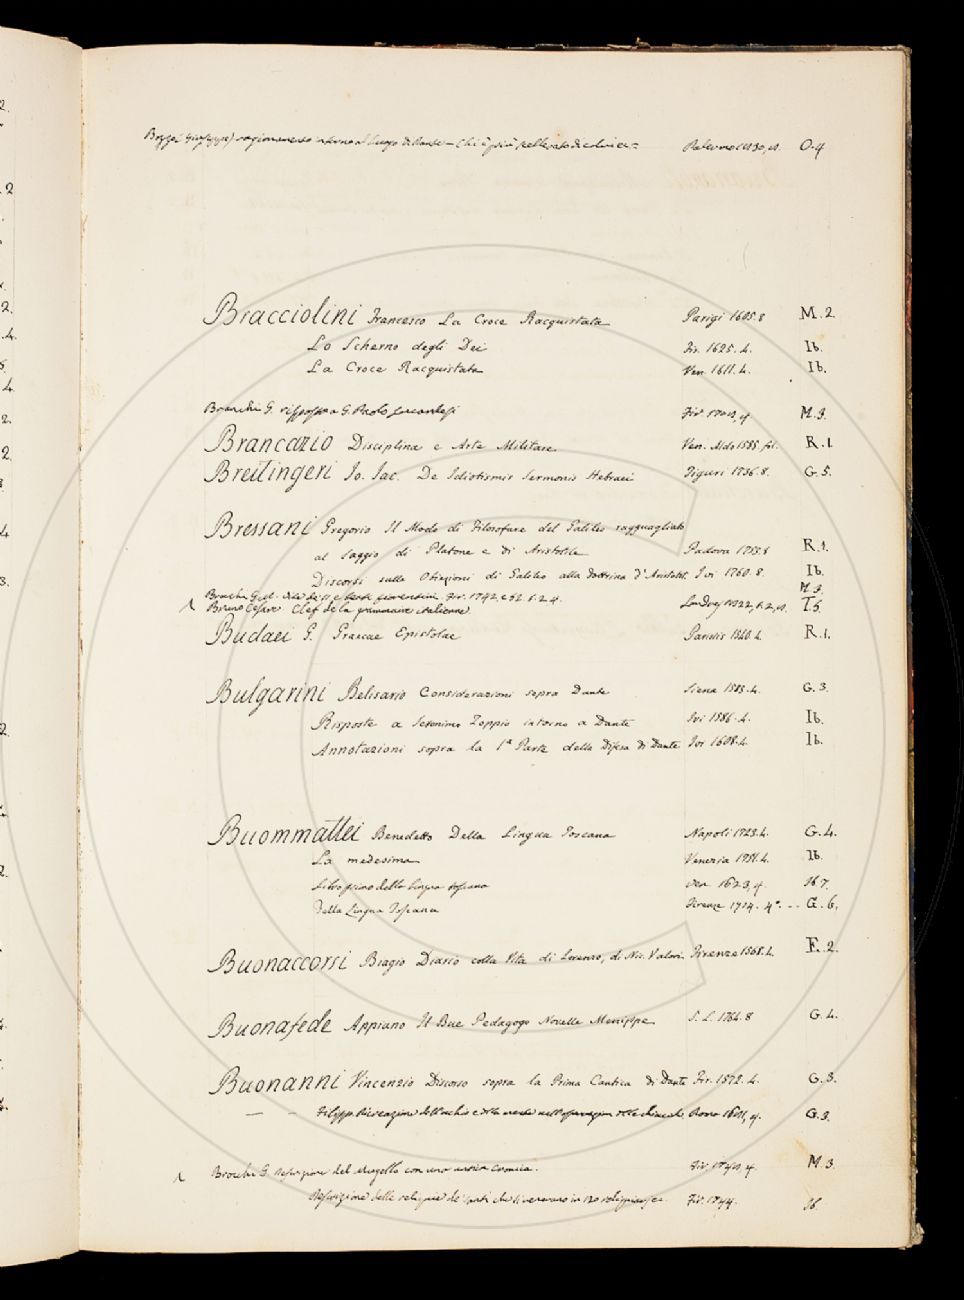 2.
2
2.
4.
4
2.
2
4
3.
2.
2.
Bozzo (Giuseppe) ragionamento intorno al luogo di Dante = Chi è più scellerato di colui ec = Palermo 1830, 8. O.4
Bracciolini Francesco La Croce Racquistata Parigi 1605.8 M.2
Lo Scherno degli Dei Fir. 1625.4. Ib.
La Croce Racquistata Ven. 1611.4. Ib.
Branchi G. risposta a G. Paolo Lucardesi Fir. 4 M.3.
Brancazio Disciplina e Arte Militare Ven. Aldo 1585. fol. R.1.
Breitingeri Jo. Jac. De Idiotismis Sermonis Hebraei Tiguri 1736.8. G.5.
Bressani Gregorio Il Modo di Filosofare del Galileo ragguagliato
al Saggio di Platone e di Aristotile Padova 1753.8 R.1.
Discorsi sulle Obiezioni di Galileo alla dottrina d'Aristot. Ivi 1760.8. Ib.
Brocchi G. vite de' SS. e beati fiorentini Fir. 1742, e 52. t.2.4. M.3.
Bruno Cesare Clef de la grammaire italienne Londres 1822, t.2, 8. T.5.
Budaei G. Graecae Epistolae Parisiis 1540.4. R.1.
Bulgarini Belisario Considerazioni sopra Dante Siena 1583.4. G.3.
Risposte a Ieronimo Zoppio intorno a Dante Ivi 1586.4. Ib.
Annotazioni sopra la 1ª Parte della Difesa di Dante Ivi 1608.4. Ib.
Buommattei Benedetto Della Lingua Toscana Napoli 1723.4. G.4.
La medesima Venezia 1751.4. Ib.
Libro primo della lingua toscana Ven. 1623, 4. Ib 7.
Della Lingua Toscana Firenze 1714. 4º. -- G.6.
Buonaccorsi Biagio Diario colla Vita di Lorenzo, di Nic. Valori Firenze 1568.4. F.2.
Buonafede Appiano Il Bue Pedagogo Novelle Menippe S. L. 1764.8 G.4.
Buonanni Vincenzio Discorso sopra la Prima Cantica di Dante Fir. 1572.4. G.3.
— — Filippo Ricreazione dell'occhio e della mente nell'osservazione delle chiocciole Roma 1681, 4. G.3
Brocchi G. Descrizione del Mugello con una antica cronica. Fir. 1748, 4. M.3
Descrizione delle reliquie de' santi che si venerano in Fir. 1744. Ib.